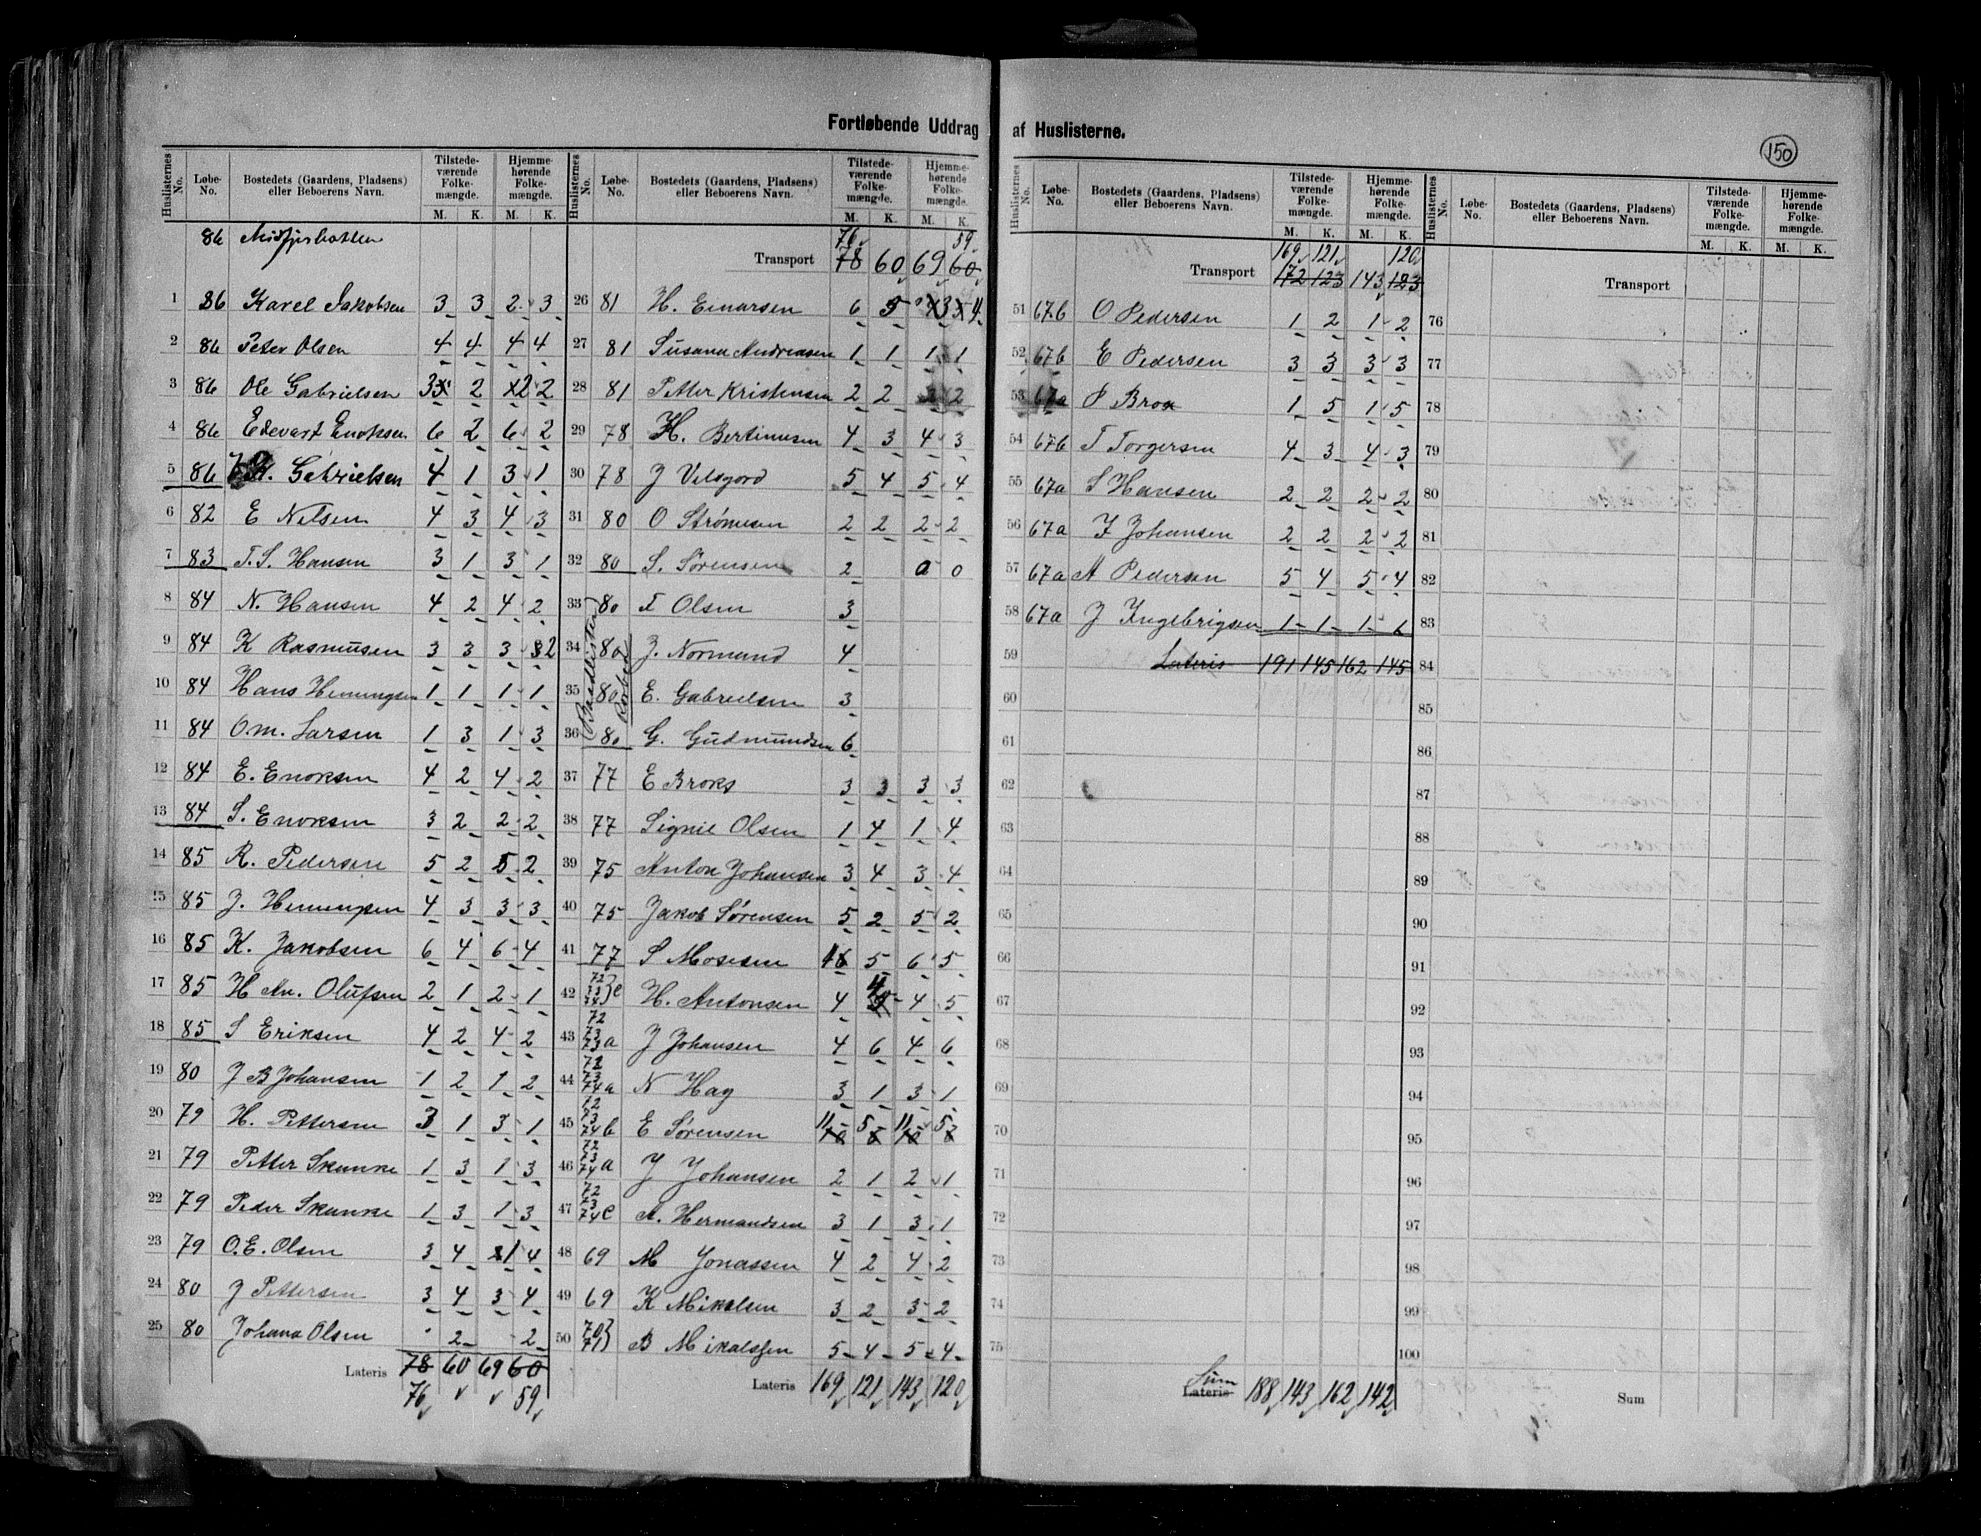 Fortløbende Uddrag af Huslisterne.
150
Huslisternes No. Løbe-No. Bostedets (Gaardens, Pladsens) eller Beboerens Navn. Tilstedeværende Folkemængde. M. K. Hjemmehørende Folkemængde. M. K.
86
1 86 Karel Jakobsen 3 3 2 3
2 86 Peter Olsen 4 4 4 4
3 86 Ole Gabrielsen 3 2 2 2
4 86 Edevart Enoksen 6 2 6 2
5 86 Gabrielsen 4 1 3 1
6 82 E Nilsen 4 3 4 3
7 83 T. S. Hansen 3 1 3 1
8 84 N. Hansen 4 2 4 2
9 84 K Rasmusen 3 3 3 2
10 84 Hans Hemingsen 1 1 1 1
11 84 O.m. Larsen 1 3 1 3
12 84 E. Enoksen 4 2 4 2
13 84 S. Enoksen 3 2 2 2
14 85 R. Pedersen 5 2 5 2
15 85 J. Hemingsen 4 3 3 3
16 85 K. Jakobsen 6 4 6 4
17 85 H An. Olufsen 2 1 2 1
18 85 S Eriksen 4 2 4 2
19 80 J B Johansen 1 2 1 2
20 79 H. Pettersen 3 1 3 1
21 79 Petter Skanke 1 3 1 3
22 79 Peder Skanke 1 3 1 3
23 79 O. E. Olsen 3 4 1 4
24 80 J Pettersen 3 4 3 4
25 80 Johana Olsen 2 2
Lateris 78 60 69 60
76 59
Huslisternes No. Løbe-No. Bostedets (Gaardens, Pladsens) eller Beboerens Navn. Tilstedeværende Folkemængde. M. K. Hjemmehørende Folkemængde. M. K.
76 59
Transport 78 60 69 60
26 81 H. Einarsen 6 5 3 4
27 81 Susana Andreasen 1 1 1 1
28 81 Petter Kristensen 2 2 2 2
29 78 H. Bertinusen 4 3 4 3
30 78 J Vilsgord 5 4 5 4
31 80 O Strømesen 2 2 2 2
32 80 S. Sørensen 2 0 0
33 80 Olsen 3
34 80 J. Normand 4
35 80 E. Gabrielsen 3
36 80 G. Gudmundsen 6
37 77 E Broks 3 3 3 3
38 77 Signie Olsen 1 4 1 4
39 75 Anton Johansen 3 4 3 4
40 75 Jakob Sørensen 5 2 5 2
41 77 S Mosesen 5 6 5
42 72 73 74 e H. Antonsen 4 4 4 5
43 72 73 73 a J Johansen 4 6 4 6
44 72 73 74 a N Hag 3 1 3 1
45 72 73 74 b E Sørensen 11 5 11 5
46 72 73 74 a J Johansen 2 1 2 1
47 72 73 74 e A. Hermandsen 3 1 3 1
48 69 M Jonassen 4 2 4 2
49 69 K Mikalsen 3 2 3 2
50 70 71 B Mikalsen 5 4 5 4
Lateris 169 121 143 120
Huslisternes No. Løbe-No. Bostedets (Gaardens, Pladsens) eller Beboerens Navn. Tilstedeværende Folkemængde. M. K. Hjemmehørende Folkemængde. M. K.
169 121 120
Transport 172 123 143 123
51 67b O Pedersen 1 2 1 2
52 67b E Pedersen 3 3 3 3
53 67a P Brox 1 5 1 5
54 67b T Torgersen 4 3 4 3
55 67a S Hansen 2 2 2 2
56 67a F Johansen 2 2 2 2
57 67a A Pedersen 5 4 5 4
58 67a J Ingebrigsen 1 1 1 1
59 Lateris 191 145 162 145
60
61
62
63
64
65
66
67
68
69
70
71
72
73
74
75
Sum
Lateris 188 143 162 142
Huslisternes No. Løbe-No. Bostedets (Gaardens, Pladsens) eller Beboerens Navn. Tilstedeværende Folkemængde. M. K. Hjemmehørende Folkemængde. M. K.
Transport
76
77
78
79
80
81
82
83
84
85
86
87
88
89
90
91
92
93
94
95
96
97
98
99
100
Sum